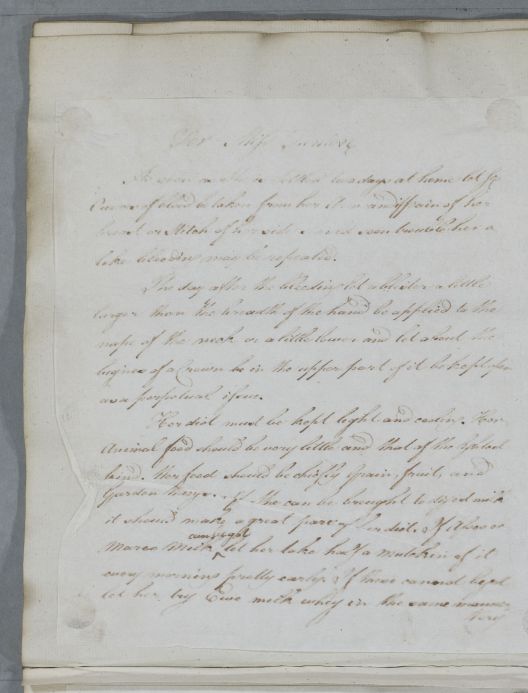 For Miss
As soon as she is settled two days at home let
Ounces of blood be taken from her Arm and if pain of her
breast or Stitch of her side should soon trouble her a
like bleeding may be repeated.
The day after the bleeding let a blister a little
larger than the breadth of the hand be applied to the
nape of the neck or a little lower and let about the
bigness of a Crown be in the upper part of it be kept open
as a perpetual issue.
Her diet must be kept light and cooling. Her
Animal food should be very little and that of the
kind. Her food should be chiefly grain, fruit, and
Garden things. If she can be brought to digest milk
it should make a great part of her diet. If Asses or
Mares Milk can be got let her take half a mutchkin of it
every morning pretty early. If these cannot be got
let her try Ewe milk whey in the same manner